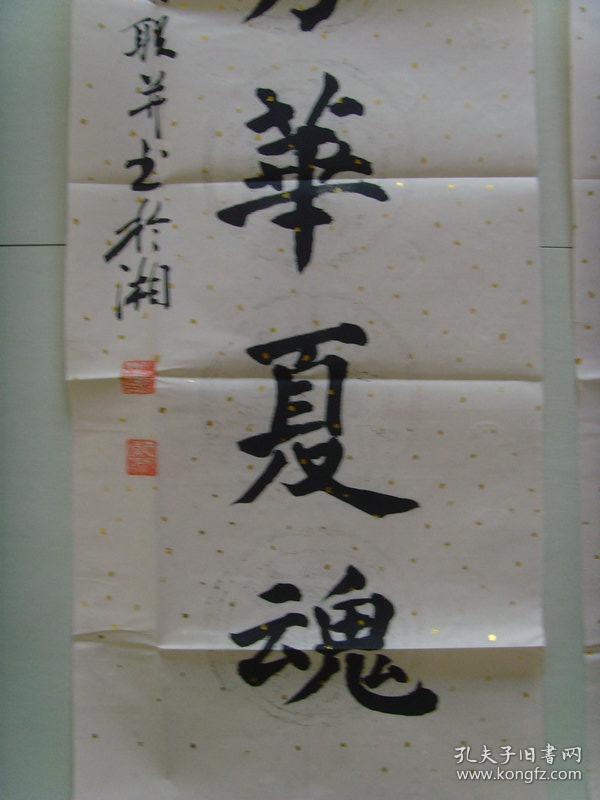 華夏魂
联并书於湘
孔夫子旧書网
www.kongfz.com